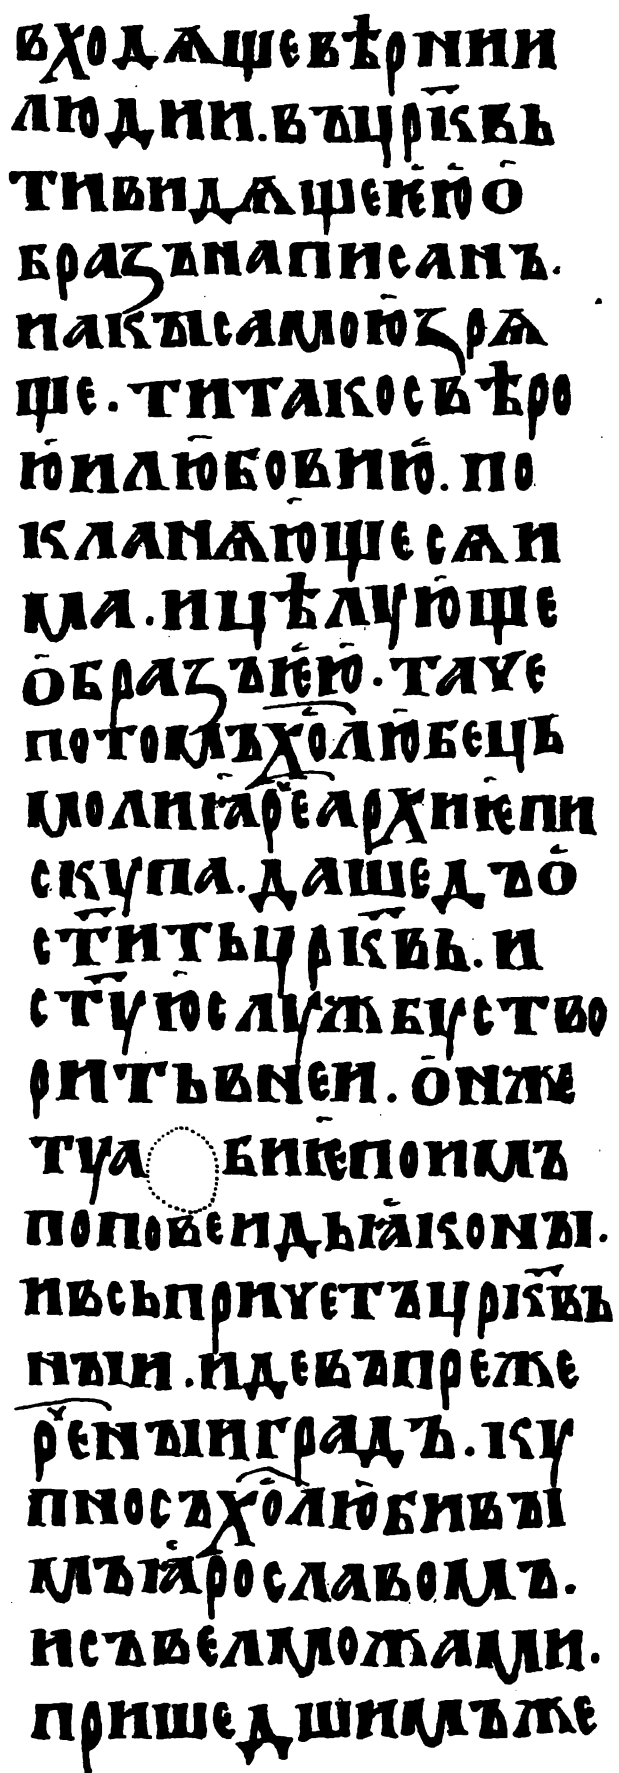 входѧщевѣрнии
людии.въцр҃квь
тивидѧщеѥ҆ю҆ о҆
бразънаписанъ.
иакꙑсамою҆зрѧ
ще. титакосвѣро
ю҆илю҆бовию҆. по
кланѧю҆щесѧи
ма. ицѣлую҆ще
о҆бразъѥ҆ю҆. тауе
потомъх҃о҆лю҆бець
молиꙗ҆р҃ⷱ҇еархиѥ҆пи
скупа. дашедъо҆
ст҃итьцр҃квь. и
ст҃ую҆службуство
ритьвнеи. о҆нже
туа биѥ҆поимъ
поповеидьꙗ҆конꙑ.
ивсьприуетъцр҃квь
нꙑи. идевъпреже
р҃ⷱ҇енꙑиградъ. ку
пносъх҃о҆лю҆бивꙑ
мъꙗ҆рославомъ.
исъвелможами.
пришедшимъже